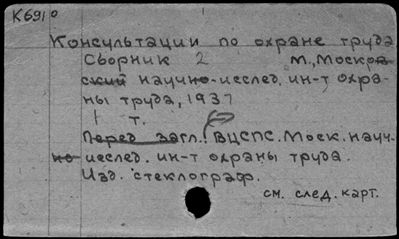 К6910
Консультации по охране труда
Сборник 2 М., Москов
ский научно-исслед. ин-т охра-
ны труда, 1937
1 т.
Перед загл.: ВЦСПС. Моск. науч-
но-исслед. ин-т охраны труда.
Изд. стеклограф.
см. след. карт.